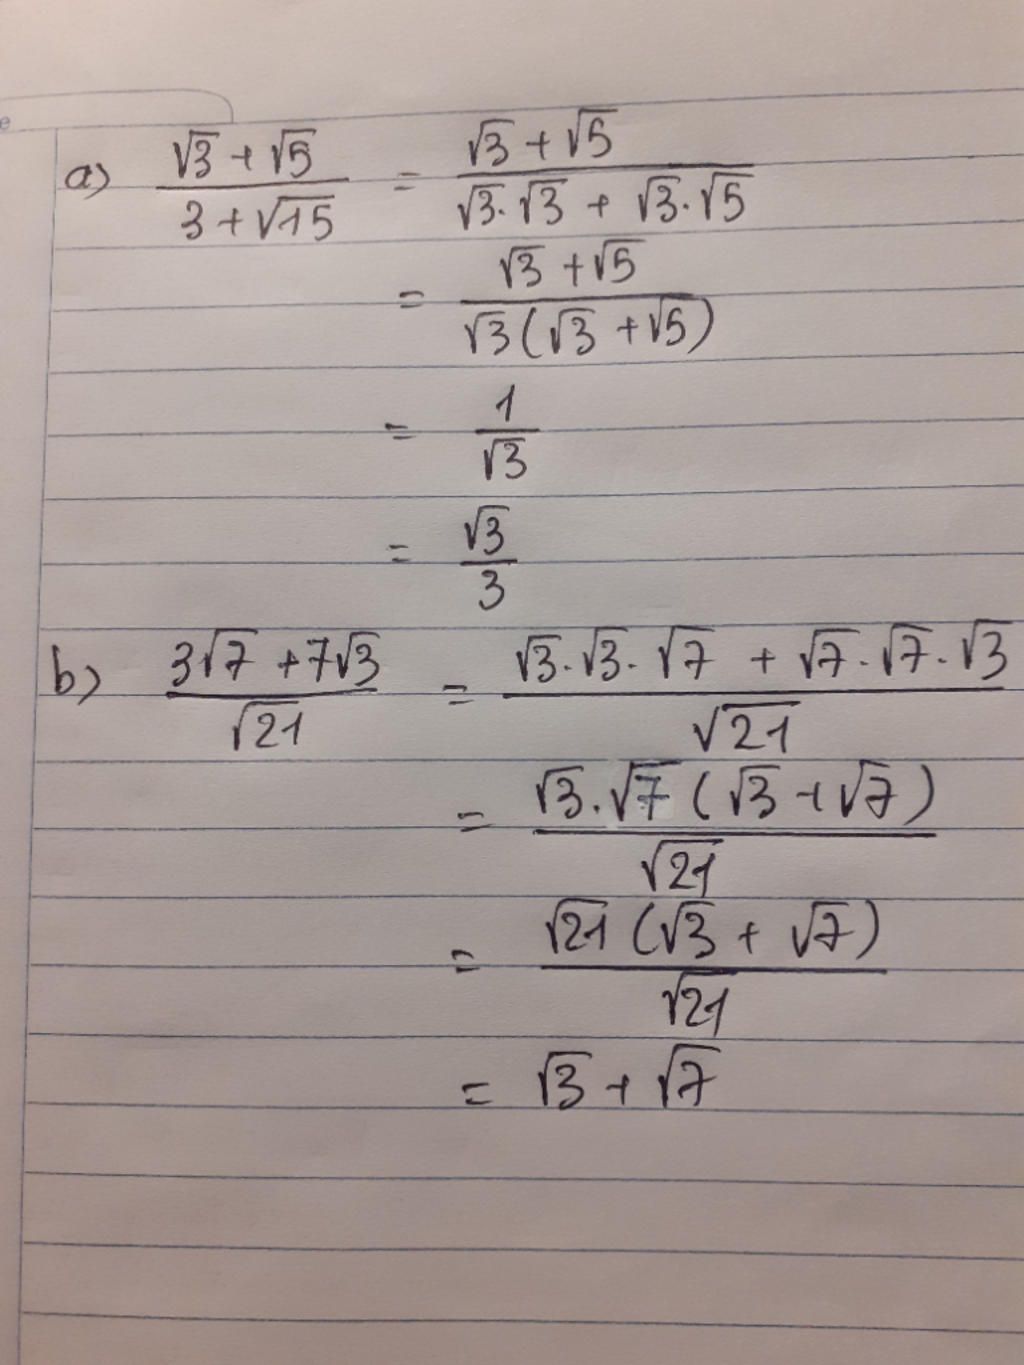 a) (√3 + √5)/(3 + √15) = (√3 + √5)/(√3.√3 + √3.√5)
= (√3 + √5)/(√3(√3 + √5))
= 1/√3
= √3/3
b) (3√7 + 7√3)/√21 = (√3.√3.√7 + √7.√7.√3)/√21
= (√3.√7(√3 + √7))/√21
= (√21(√3 + √7))/√21
= √3 + √7